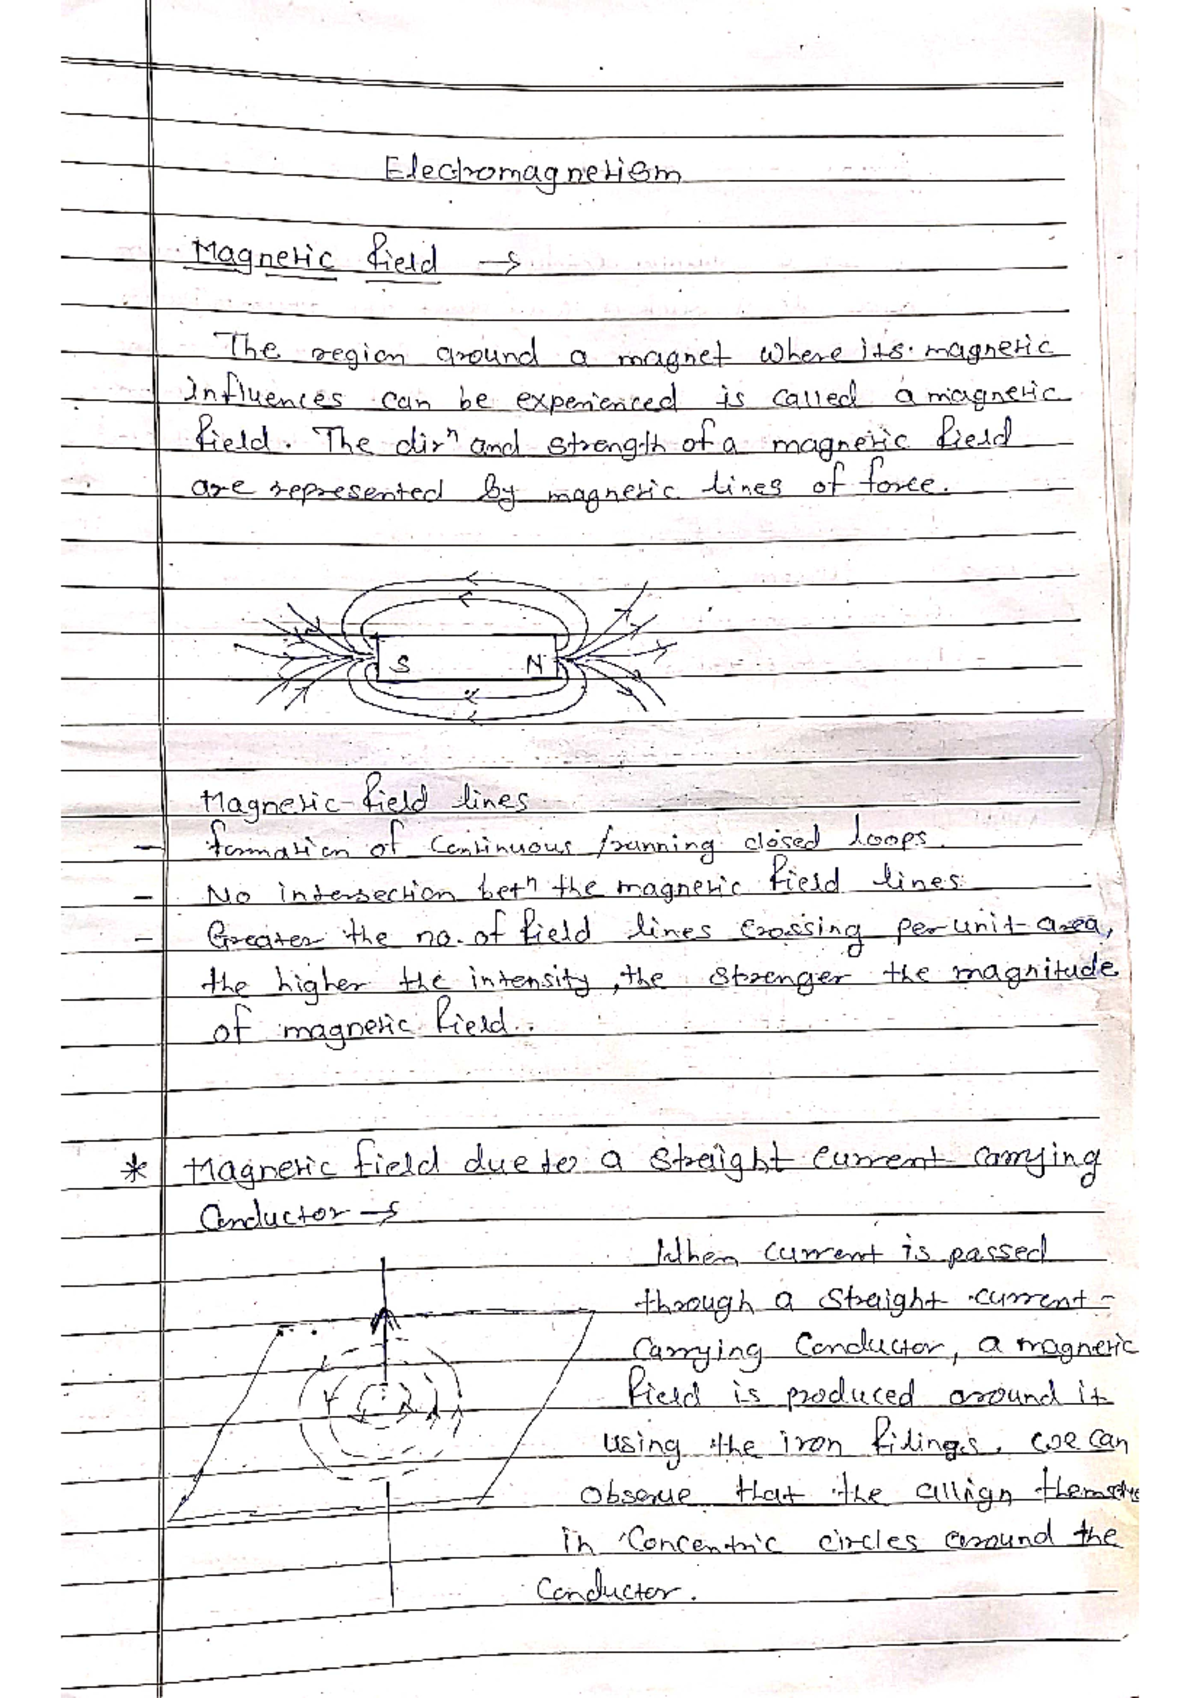 Electromagnetism
Magnetic field →
The region around a magnet where its magnetic
influences can be experienced is called a magnetic
field. The dirⁿ and strength of a magnetic field
are represented by magnetic lines of force.
S N
Magnetic field lines
- formation of continuous /running closed loops.
- No intersection betⁿ the magnetic field lines.
- Greater the no. of field lines crossing per unit area,
the higher the intensity, the stronger the magnitude
of magnetic field.
* Magnetic field due to a straight current carrying
Conductor →
When current is passed
through a straight current-
Carrying Conductor, a magnetic
field is produced around it
using the iron filings. we can
observe that the allign themselves
in concentric circles around the
Conductor.